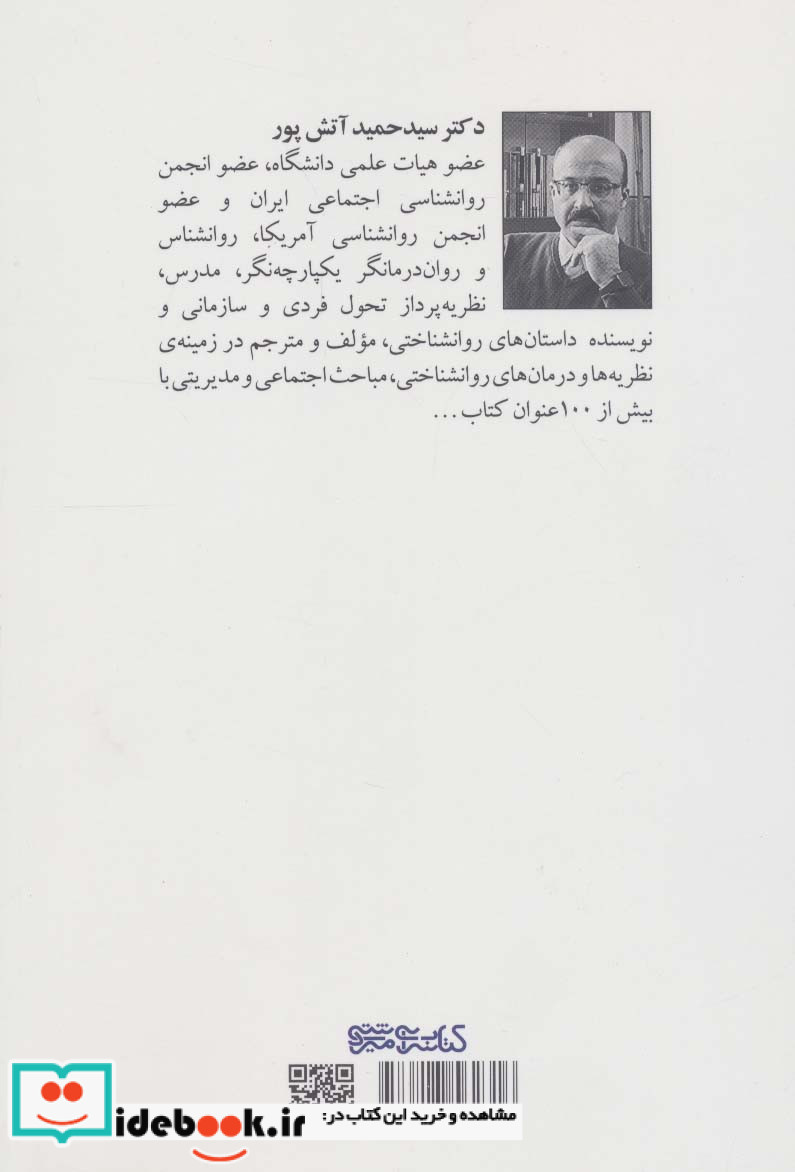 دکتر سیدحمید آتش پور
عضو هیات علمی دانشگاه، عضو انجمن
روانشناسی اجتماعی ایران و عضو
انجمن روانشناسی آمریکا، روانشناس
و روان‌درمانگر یکپارچه‌نگر، مدرس،
نظریه‌پرداز تحول فردی و سازمانی و
نویسنده داستان‌های روانشناختی، مؤلف و مترجم در زمینه‌ی
نظریه‌ها و درمان‌های روانشناختی، مباحث اجتماعی و مدیریتی با
بیش از ۱۰۰عنوان کتاب...
مشاهده و خرید این کتاب در:
idebook.ir